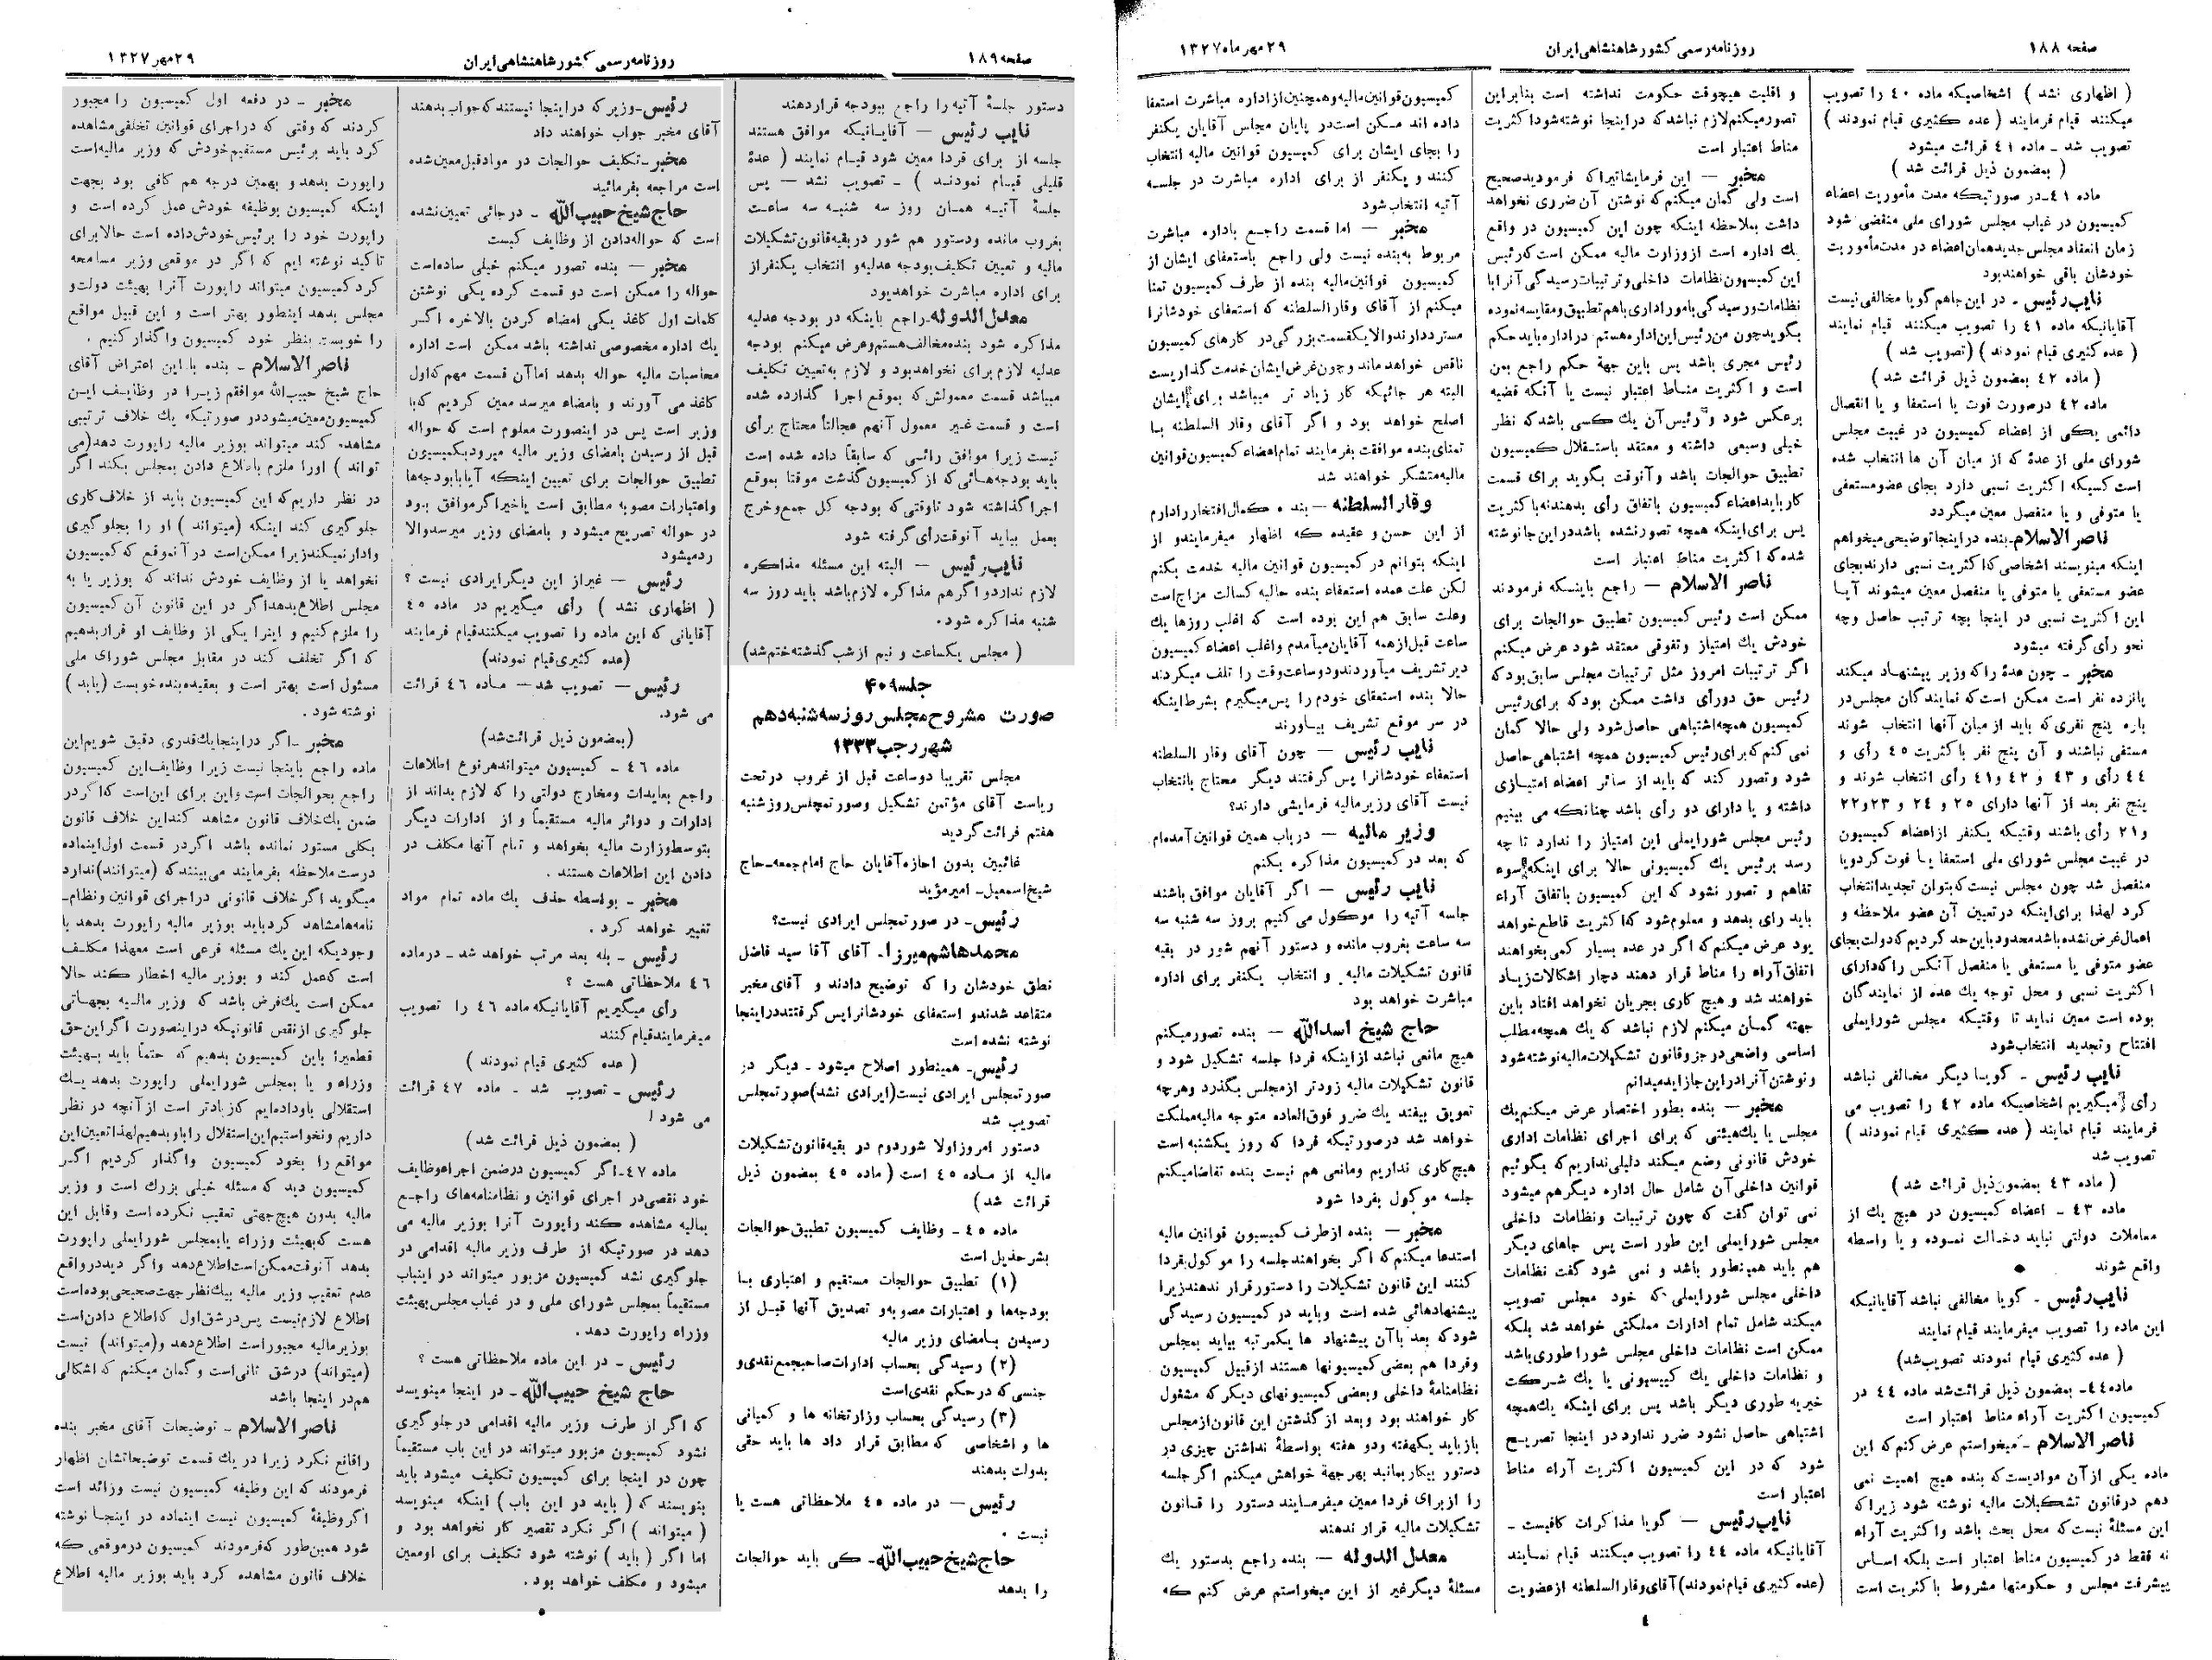 صفحه ۱۸۸
روزنامه رسمی کشور شاهنشاهی ایران
۲۹ مهر ماه ۱۳۲۷
( اظهاری نشد ) اشخاصیکه ماده ۴۰ را تصویب
میکنند قیام فرمایند ( عده کثیری قیام نمودند )
تصویب شد ـ ماده ۴۱ قرائت میشود
( بمضمون ذیل قرائت شد )
ماده ۴۱ـ در صورتیکه مدت مأموریت اعضاء
کمیسیون در غیاب مجلس شورای ملی منقضی شود
زمان انعقاد مجلس جدید همان اعضاء در مدت مأموریت
خودشان باقی خواهند بود
نایب رئیس ـ در این جا هم گویا مخالفی نیست
آقایانیکه ماده ۴۱ را تصویب میکنند قیام نمایند
( عده کثیری قیام نمودند ) ( تصویب شد )
( ماده ۴۲ بمضمون ذیل قرائت شد )
ماده ۴۲ در صورت فوت یا استعفا و یا انفصال
دائمی یکی از اعضاء کمیسیون در غیبت مجلس
شورای ملی از عدهٔ که از میان آن ها انتخاب شده
است کسیکه اکثریت نسبی دارد بجای عضو مستعفی
یا متوفی و یا منفصل معین میگردد
ناصر الاسلام ـ بنده در اینجا توضیحی میخواهم
اینکه مینویسند اشخاصی که اکثریت نسبی دارند بجای
عضو مستعفی یا متوفی یا منفصل معین میشوند آیا
این اکثریت نسبی در اینجا بچه ترتیب حاصل وچه
نحو رأی گرفته میشود
مخبر ـ چون عدهٔ را که وزیر پیشنهاد میکند
پانزده نفر است ممکن است که نمایندگان مجلس در
باره پنج نفری که باید از میان آنها انتخاب شوند
متفق نباشند و آن پنج نفر با کثریت ۴۵ رأی و
۴۴ رأی و ۴۳ و ۴۲ و ۴۱ رأی انتخاب شوند و
پنج نفر بعد از آنها دارای ۲۵ و ۲۴ و ۲۳ و ۲۲
و ۲۱ رأی باشند وقتیکه یکنفر از اعضاء کمیسیون
در غیبت مجلس شورای ملی استعفا یا فوت کرد و یا
منفصل شد چون مجلس نیست که بتوان تجدید انتخاب
کرد لهذا برای اینکه در تعیین آن عضو ملاحظه و
اعمال غرض نشده باشد محدود باین حد کردیم که دولت بجای
عضو متوفی یا مستعفی یا منفصل آنکس را که دارای
اکثریت نسبی و محل توجه یك عده از نمایندگان
بوده است معین نماید تا وقتیکه مجلس شورایملی
افتتاح و تجدید انتخاب شود
نایب رئیس ـ گویا دیگر مخالفی نباشد
رأی میگیریم اشخاصیکه ماده ۴۲ را تصویب می
فرمایند قیام نمایند ( عده کثیری قیام نمودند )
تصویب شد
( ماده ۴۳ بمضمون ذیل قرائت شد )
ماده ۴۳ ـ اعضاء کمیسیون در هیچ یك از
معاملات دولتی نباید دخالت نموده و یا واسطه
واقع شوند
نایب رئیس ـ گویا مخالفی نباشد آقایانیکه
این ماده را تصویب میفرمایند قیام نمایند
( عده کثیری قیام نمودند تصویب شد)
ماده ۴۴ـ بمضمون ذیل قرائت شد ماده ۴۴ در
کمیسیون اکثریت آراء مناط اعتبار است
ناصر الاسلام ـ میخواستم عرض کنم که این
ماده یکی از آن موادیست که بنده هیچ اهمیت نمی
دهم در قانون تشکیلات مالیه نوشته شود زیرا که
این مسئلهٔ نیست که محل بحث باشد و اکثریت آراء
نه فقط در کمیسیون مناط اعتبار است بلکه اساس
پیشرفت مجلس و حکومتها مشروط با کثریت است
و اقلیت هیچوقت حکومت نداشته است بنابراین
تصور میکنم لازم نباشد که در اینجا نوشته شود اکثریت
مناط اعتبار است
مخبر ـ این فرمایشاتیرا که فرمودید صحیح
است ولی گمان میکنم که نوشتن آن ضرری نخواهد
داشت بملاحظه اینکه چون این کمیسیون در واقع
یك اداره است از وزارت مالیه ممکن است که رئیس
این کمیسیون نظامات داخلی و ترتیبات رسیدگی آنرا با
نظامات و رسیدگی بامور اداری باهم تطبیق و مقایسه نموده
بگوید چون من رئیس این اداره هستم در اداره باید حکم
رئیس مجری باشد پس باین جهة حکم راجع بمن
است و اکثریت مناط اعتبار نیست یا آنکه قضیه
برعکس شود و رئیس آن یك کسی باشد که نظر
خیلی وسیعی داشته و معتقد باستقلال کمیسیون
تطبیق حوالجات باشد و آنوقت بگوید برای قسمت
کار باید اعضاء کمیسیون باتفاق رأی بدهند نه باکثریت
پس برای اینکه همچه تصور نشده باشد در این جا نوشته
شده که اکثریت مناط اعتبار است
ناصر الاسلام ـ راجع باینکه فرمودند
ممکن است رئیس کمیسیون تطبیق حوالجات برای
خودش یك امتیاز و تفوقی معتقد شود عرض میکنم
اگر ترتیبات امروز مثل ترتیبات مجلس سابق بود که
رئیس حق دو رأی داشت ممکن بود که برای رئیس
کمیسیون همچه اشتباهی حاصل شود ولی حالا گمان
نمی کنم که برای رئیس کمیسیون همچه اشتباهی حاصل
شود و تصور کند که باید از سائر اعضاء امتیازی
داشته و یا دارای دو رأی باشد چنانکه می بینیم
رئیس مجلس شورایملی این امتیاز را ندارد تا چه
رسد برئیس یك کمیسیونی حالا برای اینکه سوء
تفاهم و تصور نشود که این کمیسیون باتفاق آراء
باید رأی بدهد و معلوم شود که اکثریت قاطع خواهد
بود عرض میکنم که اگر در عده بسیار کمی بخواهند
اتفاق آراء را مناط قرار دهند دچار اشکالات زیاد
خواهند شد و هیچ کاری بجریان نخواهد افتاد باین
جهته گمان میکنم لازم نباشد که یك همچه مطلب
اساسی واضحی در جزو قانون تشکیلات مالیه نوشته شود
و نوشتن آنرا در این جا زاید میدانم
مخبر ـ بنده بطور اختصار عرض میکنم یك
مجلس یا یك هیئتی که برای اجرای نظامات اداری
خودش قانونی وضع میکند دلیلی نداریم که بگوئیم
قوانین داخلی آن شامل حال اداره دیگر هم میشود
نمی توان گفت که چون ترتیبات و نظامات داخلی
مجلس شورایملی این طور است پس جاهای دیگر
هم باید همینطور باشد و نمی شود گفت نظامات
داخلی مجلس شورایملی که خود مجلس تصویب
میکند شامل تمام ادارات مملکتی خواهد شد بلکه
ممکن است نظامات داخلی مجلس شورا طوری باشد
و نظامات داخلی یك کمیسیونی یا یك شرکت
خیریه طوری دیگر باشد پس برای اینکه یك همچه
اشتباهی حاصل نشود ضرر ندارد در اینجا تصریح
شود که در این کمیسیون اکثریت آراء مناط
اعتبار است
نایب رئیس ـ گویا مذاکرات کافیست ـ
آقایانیکه ماده ۴۴ را تصویب میکنند قیام نمایند
(عده کثیری قیام نمودند) آقای وقار السلطنه از عضویت
کمیسیون قوانین مالیه و همچنین از اداره مباشرت استعفا
داده اند ممکن است در پایان مجلس آقایان یکنفر
را بجای ایشان برای کمیسیون قوانین مالیه انتخاب
کنند و یکنفر از برای اداره مباشرت در جلسه
آتیه انتخاب شود
مخبر ـ اما قسمت راجع باداره مباشرت
مربوط به بنده نیست ولی راجع باستعفای ایشان از
کمیسیون قوانین مالیه بنده از طرف کمیسیون تمنا
میکنم از آقای وقار السلطنه که استعفای خودشانرا
مسترد دارند والا یکقسمت بزرگی در کارهای کمیسیون
ناقص خواهد ماند و چون غرض ایشان خدمت گذاریست
البته هر جائیکه کار زیاد تر میباشد برای ایشان
اصلح خواهد بود و اگر آقای وقار السلطنه با
تمنای بنده موافقت بفرمایند تمام اعضاء کمیسیون قوانین
مالیه متشکر خواهند شد
وقار السلطنه ـ بنده کمال افتخار را دارم
از این حسن و عقیده که اظهار میفرمایند و از
اینکه بتوانم در کمیسیون قوانین مالیه خدمت بکنم
لکن علت عمده استعفاء بنده حالیه کسالت مزاج است
و علت سابق هم این بوده است که اغلب روزها یك
ساعت قبل از همه آقایان میآمدم و اغلب اعضاء کمیسیون
دیر تشریف میآوردند و دو ساعت وقت را تلف میکردند
حالا بنده استعفای خودم را پس میگیرم بشرط اینکه
در سر موقع تشریف بیاورند
نایب رئیس ـ چون آقای وقار السلطنه
استعفاء خودشانرا پس گرفتند دیگر محتاج بانتخاب
نیست آقای وزیر مالیه فرمایشی دارند؟
وزیر مالیه ـ در باب همین قوانین آمده‌ام
که بعد در کمیسیون مذاکره بکنم
نایب رئیس ـ اگر آقایان موافق باشند
جلسه آتیه را موکول می کنیم بروز سه شنبه سه
سه ساعت بغروب مانده و دستور آنهم شور در بقیه
قانون تشکیلات مالیه و انتخاب یکنفر برای اداره
مباشرت خواهد بود
حاج شیخ اسدالله ـ بنده تصور میکنم
هیچ مانعی نباشد از اینکه فردا جلسه تشکیل شود و
قانون تشکیلات مالیه زودتر از مجلس بگذرد و هر چه
تعویق بیفتد یك ضرر فوق العاده متوجه مالیه مملکت
خواهد شد در صورتیکه فردا که روز یکشنبه است
هیچ کاری نداریم و مانعی هم نیست بنده تقاضا میکنم
جلسه موکول بفردا شود
مخبر ـ بنده از طرف کمیسیون قوانین مالیه
استدعا میکنم که اگر بخواهند جلسه را موکول بفردا
کنند این قانون تشکیلات را دستور قرار ندهند زیرا
پیشنهادهائی شده است و باید در کمیسیون رسیدگی
شود که بعد با آن پیشنهاد ها یکمرتبه بیاید بمجلس
و فردا هم بعضی کمیسیونها هستند از قبیل کمیسیون
نظامنامهٔ داخلی و بعضی کمیسیونهای دیگر که مشغول
کار خواهند بود و بعد از گذشتن این قانون از مجلس
باز باید یکهفته و دو هفته بواسطهٔ نداشتن چیزی در
دستور بیکار بمانید بهر جهة خواهش میکنم اگر جلسه
را از برای فردا معین میفرمایند دستور را قانون
تشکیلات مالیه قرار ندهند
معدل الدوله ـ بنده راجع بدستور یك
مسئلهٔ دیگر غیر از این میخواستم عرض کنم که
۴
صفحه ۱۸۹
روزنامه رسمی کشور شاهنشاهی ایران
۲۹ مهر ۱۳۲۷
دستور جلسهٔ آتیه را راجع ببودجه قرار دهند
نایب رئیس ـ آقایانیکه موافق هستند
جلسه از برای فردا معین شود قیام نمایند ( عدهٔ
قلیلی قیام نمودند ) ـ تصویب نشد ـ پس
جلسهٔ آتیه همان روز سه شنبه سه ساعت
بغروب مانده و دستور هم شور در بقیه قانون تشکیلات
مالیه و تعیین تکلیف بودجه عدلیه و انتخاب یکنفر از
برای اداره مباشرت خواهد بود
معدل الدوله ـ راجع باینکه در بودجه عدلیه
مذاکره شود بنده مخالف هستم و عرض میکنم بودجه
عدلیه لازم برای نخواهد بود و لازم به تعیین تکلیف
میباشد قسمت معمولش که بموقع اجرا گذارده شده
است و قسمت غیر معمول آنهم عجالتاً محتاج برأی
نیست زیرا موافق رائی که سابقاً داده شده است
باید بودجه هائی که از کمیسیون گذشت موقتا بموقع
اجرا گذاشته شود تا وقتی که بودجه کل جمع و خرج
بعمل بیاید آنوقت رأی گرفته شود
نایب رئیس ـ البته این مسئله مذاکره
لازم ندارد و اگر هم مذاکره لازم باشد باید روز سه
شنبه مذاکره شود.
( مجلس یکساعت و نیم از شب گذشته ختم شد)
جلسه ۴۰۹
صورت مشروح مجلس روز سه شنبه دهم
شهر رجب ۱۳۳۳
مجلس تقریبا دو ساعت قبل از غروب در تحت
ریاست آقای مؤتمن تشکیل و صورتمجلس روز شنبه
هفتم قرائت گردید
غائبین بدون اجازه آقایان حاج امام جمعه ـ حاج
شیخ اسمعیل ـ امیر مؤید
رئیس ـ در صورتمجلس ایرادی نیست؟
محمد هاشم میرزا ـ آقای آقا سید فاضل
نطق خودشان را که توضیح دادند و آقای مخبر
متقاعد شدند و استعفای خودشانرا پس گرفتند در اینجا
نوشته نشده است
رئیس ـ همینطور اصلاح میشود ـ دیگر در
صورتمجلس ایرادی نیست (ایرادی نشد) صورتمجلس
تصویب شد
دستور امروز اولا شور دوم در بقیه قانون تشکیلات
مالیه از ماده ۴۵ است ( ماده ۴۵ بمضمون ذیل
قرائت شد )
ماده ۴۵ ـ وظایف کمیسیون تطبیق حوالجات
بشرح ذیل است
(۱) تطبیق حوالجات مستقیم و اعتباری با
بودجه‌ها و اعتبارات مصوبه و تصدیق آنها قبل از
رسیدن بامضای وزیر مالیه
(۲) رسیدگی بحساب ادارات صاحبجمع نقدی و
جنسی که در حکم نقدی است
(۳) رسیدگی بحساب وزارتخانه ها و کمپانی
ها و اشخاصی که مطابق قرار داد ها باید حقی
بدولت بدهند
رئیس ـ در ماده ۴۵ ملاحظاتی هست یا
نیست .
حاج شیخ حبیب الله ـ کی باید حوالجات
را بدهد
رئیس ـ وزیر که در اینجا نیستند که جواب بدهند
آقای مخبر جواب خواهند داد
مخبر ـ تکلیف حوالجات در مواد قبل معین شده
است مراجعه بفرمائید
حاج شیخ حبیب الله ـ در جائی تعیین نشده
است که حواله دادن از وظایف کیست
مخبر ـ بنده تصور میکنم خیلی ساده است
حواله را ممکن است دو قسمت کرده یکی نوشتن
کلمات اول کاغذ یکی امضاء کردن بالاخره اگر
یك اداره مخصوصی نداشته باشد ممکن است اداره
محاسبات مالیه حواله بدهد اما آن قسمت مهم که اول
کاغذ می آورند و بامضاء میرسد معین کردیم که با
وزیر است پس در اینصورت معلوم است که حواله
قبل از رسیدن بامضای وزیر مالیه میرود بکمیسیون
تطبیق حوالجات برای تعیین اینکه آیا با بودجه‌ها
و اعتبارات مصوبه مطابق است یا خیر اگر موافق بود
در حواله تصریح میشود و بامضای وزیر میرسد والا
رد میشود
رئیس ـ غیر از این دیگر ایرادی نیست ؟
( اظهاری نشد ) رأی میگیریم در ماده ۴۵
آقایانی که این ماده را تصویب میکنند قیام فرمایند
(عده کثیری قیام نمودند)
رئیس ـ تصویب شد ـ ماده ۴۶ قرائت
می شود.
(بمضمون ذیل قرائت شد)
ماده ۴۶ ـ کمیسیون میتواند هر نوع اطلاعات
راجع بعایدات و مخارج دولتی را که لازم بداند از
ادارات و دوائر مالیه مستقیماً و از ادارات دیگر
بتوسط وزارت مالیه بخواهد و تمام آنها مکلف در
دادن این اطلاعات هستند .
مخبر ـ بواسطه حذف یك ماده تمام مواد
تغییر خواهد کرد .
رئیس ـ بله بعد مرتب خواهد شد ـ در ماده
۴۶ ملاحظاتی هست ؟
رأی میگیریم آقایانیکه ماده ۴۶ را تصویب
میفرمایند قیام کنند
( عده کثیری قیام نمودند )
رئیس ـ تصویب شد ـ ماده ۴۷ قرائت
می شود /
( بمضمون ذیل قرائت شد )
ماده ۴۷ـ اگر کمیسیون در ضمن اجراء وظایف
خود نقصی در اجرای قوانین و نظامنامه‌های راجع
بمالیه مشاهده کند راپورت آنرا بوزیر مالیه می
دهد در صورتیکه از طرف وزیر مالیه اقدامی در
جلوگیری نشد کمیسیون مزبور میتواند در اینباب
مستقیماً بمجلس شورای ملی و در غیاب مجلس بهیئت
وزراء راپورت دهد .
رئیس ـ در این ماده ملاحظاتی هست ؟
حاج شیخ حبیب الله ـ در اینجا مینویسد
که اگر از طرف وزیر مالیه اقدامی در جلوگیری
نشود کمیسیون مزبور میتواند در این باب مستقیماً
چون در اینجا برای کمیسیون تکلیف میشود باید
بنویسند که ( باید در این باب ) اینکه مینویسد
( میتواند ) اگر نکرد تقصیر کار نخواهد بود و
اما اگر ( باید ) نوشته شود تکلیف برای او معین
میشود و مکلف خواهد بود .
مخبر ـ در دفعه اول کمیسیون را مجبور
کردند که وقتی که در اجرای قوانین تخلفی مشاهده
کرد باید برئیس مستقیم خودش که وزیر مالیه است
راپورت بدهد و بهمین درجه هم کافی بود بجهت
اینکه کمیسیون بوظیفه خودش عمل کرده است و
راپورت خود را برئیس خودش داده است حالا برای
تاکید نوشته ایم که اگر در موقعی وزیر مسامحه
کرد کمیسیون میتواند راپورت آنرا بهیئت دولت و
مجلس بدهد اینطور بهتر است و این قبیل مواقع
را خوبست بنظر خود کمیسیون واگذار کنیم .
ناصر الاسلام ـ بنده با این اعتراض آقای
حاج شیخ حبیب الله موافقم زیرا در وظایف این
کمیسیون معین میشود در صورتیکه یك خلاف ترتیبی
مشاهده کند میتواند بوزیر مالیه راپورت دهد (می
تواند ) اورا ملزم باطلاع دادن بمجلس بکند اگر
در نظر داریم که این کمیسیون باید از خلاف کاری
جلوگیری کند اینکه (میتواند ) او را بجلوگیری
وادار نمیکند زیرا ممکن است در آنموقع که کمیسیون
نخواهد یا از وظایف خودش نداند که بوزیر یا به
مجلس اطلاع بدهد اگر در این قانون آن کمیسیون
را ملزم کنیم و اینرا یکی از وظایف او قرار بدهیم
که اگر تخلف کند در مقابل مجلس شورای ملی
مسئول است بهتر است و بعقیده بنده خوبست (باید )
نوشته شود .
مخبر ـ اگر در اینجا یك قدری دقیق شویم این
ماده راجع باینجا نیست زیرا وظایف این کمیسیون
راجع بحوالجات است و این برای این است که اگر در
ضمن یك خلاف قانون مشاهد کند این خلاف قانون
بکلی مستور نمانده باشد اگر در قسمت اول اینماده
درست ملاحظه بفرمایند می بینند که (میتوانند) ندارد
میگوید اگر خلاف قانونی در اجرای قوانین و نظام‌ـ
نامه‌ها مشاهد کرد باید بوزیر مالیه راپورت بدهد با
وجودیکه این یك مسئله فرعی است معهذا مکلف
است که عمل کند و بوزیر مالیه اخطار کند حالا
ممکن است یك فرض باشد که وزیر مالیه بجهاتی
جلوگیری از نقص قانونیکه در اینصورت اگر این حق
قطعیرا باین کمیسیون بدهیم که حتماً باید بهیئت
وزراء و یا بمجلس شورایملی راپورت بدهد یك
استقلالی باو داده‌ایم که زیادتر است از آنچه در نظر
داریم و نخواستیم این استقلال را باو بدهیم لهذا تعیین این
مواقع را بخود کمیسیون واگذار کردیم اگر
کمیسیون دید که مسئله خیلی بزرك است و وزیر
مالیه بدون هیچ جهتی تعقیب نکرده است و قابل این
هست که بهیئت وزراء یا بمجلس شورایملی راپورت
بدهد آنوقت ممکن است اطلاع دهد و اگر دید در واقع
عدم تعقیب وزیر مالیه بیك نظر جهت صحیحی بوده است
اطلاع لازم نیست پس در شق اول که اطلاع دادن است
بوزیر مالیه مجبور است اطلاع دهد و (میتواند) نیست
(میتواند) در شق ثانی است و گمان میکنم که اشکالی
هم در اینجا باشد
ناصر الاسلام ـ توضیحات آقای مخبر بنده
را قانع نکرد زیرا در یك قسمت توضیحاتشان اظهار
فرمودند که این وظیفه کمیسیون نیست و زائد است
اگر وظیفهٔ کمیسیون نیست اینماده در اینجا نوشته
شود همین طور که فرمودند کمیسیون در موقعی که
خلاف قانون مشاهده کرد باید بوزیر مالیه اطلاع